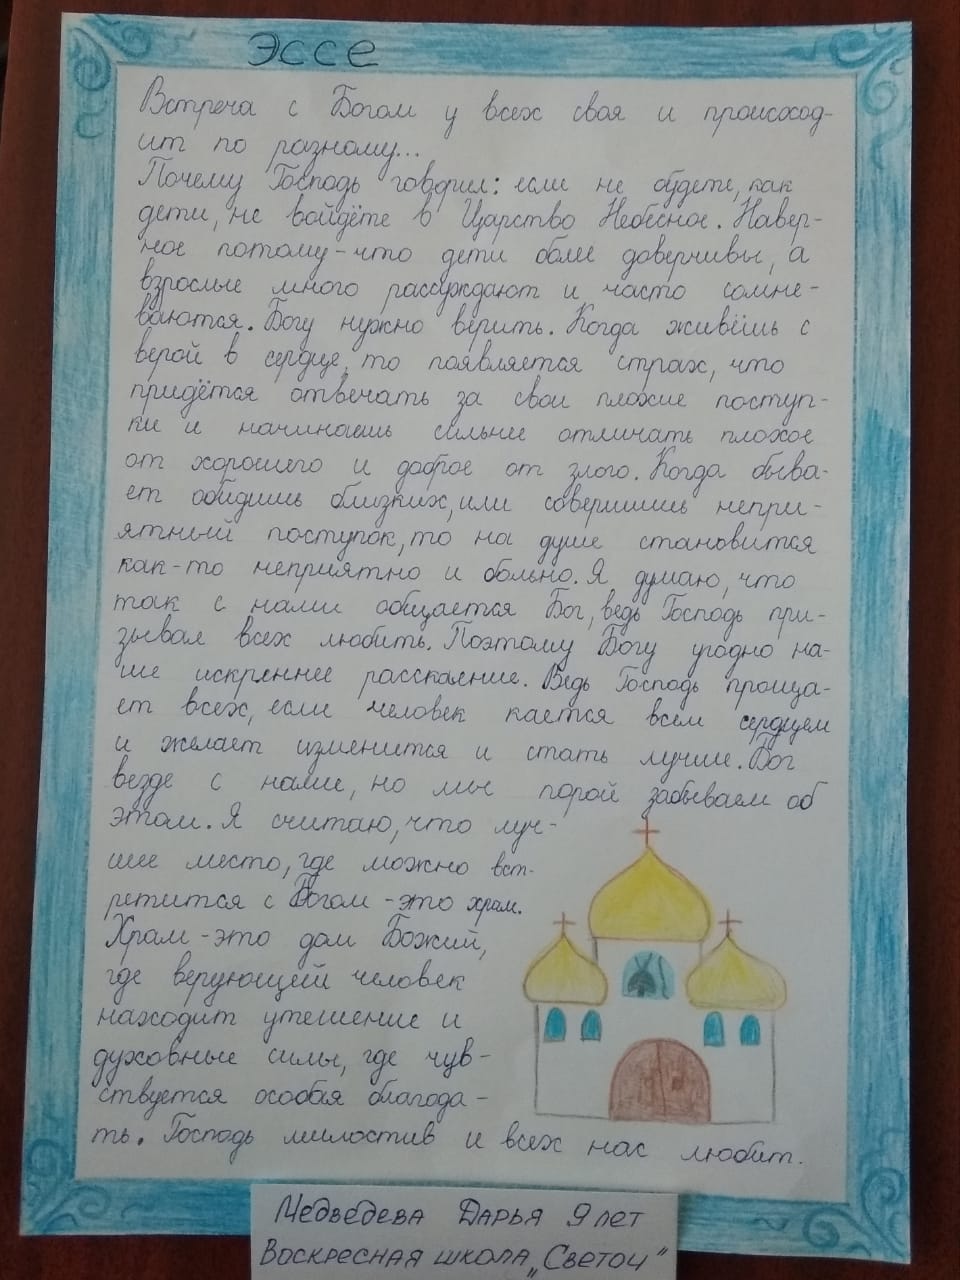 Эссе
Встреча с Богом у всех своя и происход-
ит по разному...
Почему Господь говорил: если не будете, как
дети, не войдёте в Царство Небесное. Навер-
ное потому-что дети более доверчивы, а
взрослые много рассуждают и часто сомне-
ваются. Богу нужно верить. Когда живёшь с
верой в сердце, то появляется страх, что
придётся отвечать за свои плохие поступ-
ки и начинаешь сильнее отличать плохое
от хорошего и доброе от злого. Когда быва-
ет обидишь близких, или совершишь непри-
ятный поступок, то на душе становится
как-то неприятно и больно. Я думаю, что
так с нами общается Бог, ведь Господь при-
зывал всех любить. Поэтому Богу угодно на-
ше искреннее расскаение. Ведь Господь проща-
ет всех, если человек кается всем сердцем
и желает изменится и стать лучше. Бог
везде с нами, но мы порой забываем об
этом. Я считаю, что луч-
шее место, где можно вст-
ретится с Богом - это храм.
Храм - это дом Божий,
где верующей человек
находит утешение и
духовные силы, где чув-
ствуется особая благода-
ть. Господь милостив и всех нас любит.
Медведева Дарья 9 лет
Воскресная школа „Светоч"